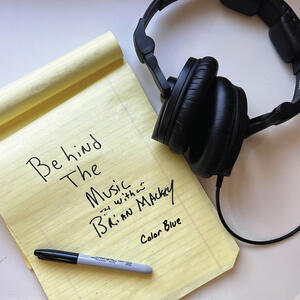 Behind
The
Music
with
Brian Mackey
Color Blue